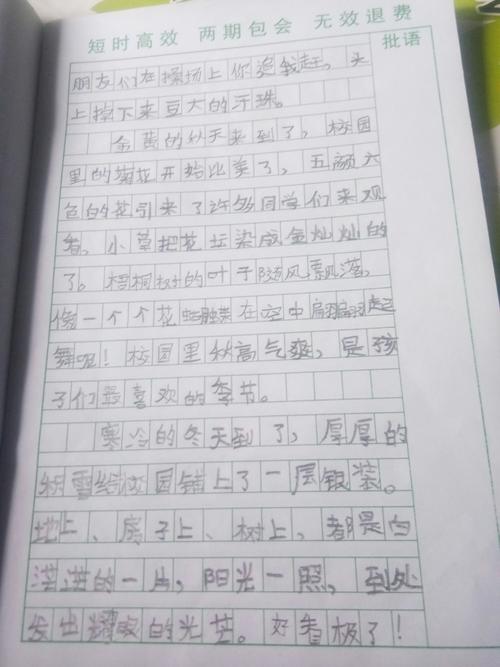 短时高效 两期包会 无效退费
批语
朋友们在操场上你追我赶，头
上掉下来豆大的汗珠。
金黄的秋天来到了，校园
里的菊花开始比美了，五颜六
色的花引来了许多同学们来观
看，小草把花坛染成金灿灿的
了。梧桐树的叶子随风飘落，
像一个个花蝴蝶在空中翩翩起
舞呢！校园里秋高气爽，是孩
子们最喜欢的季节。
寒冷的冬天到了，厚厚的
积雪给校园铺上了一层银装。
地上、房子上、树上，都是白
茫茫的一片，阳光一照，到处
发出耀眼的光芒。好看极了！